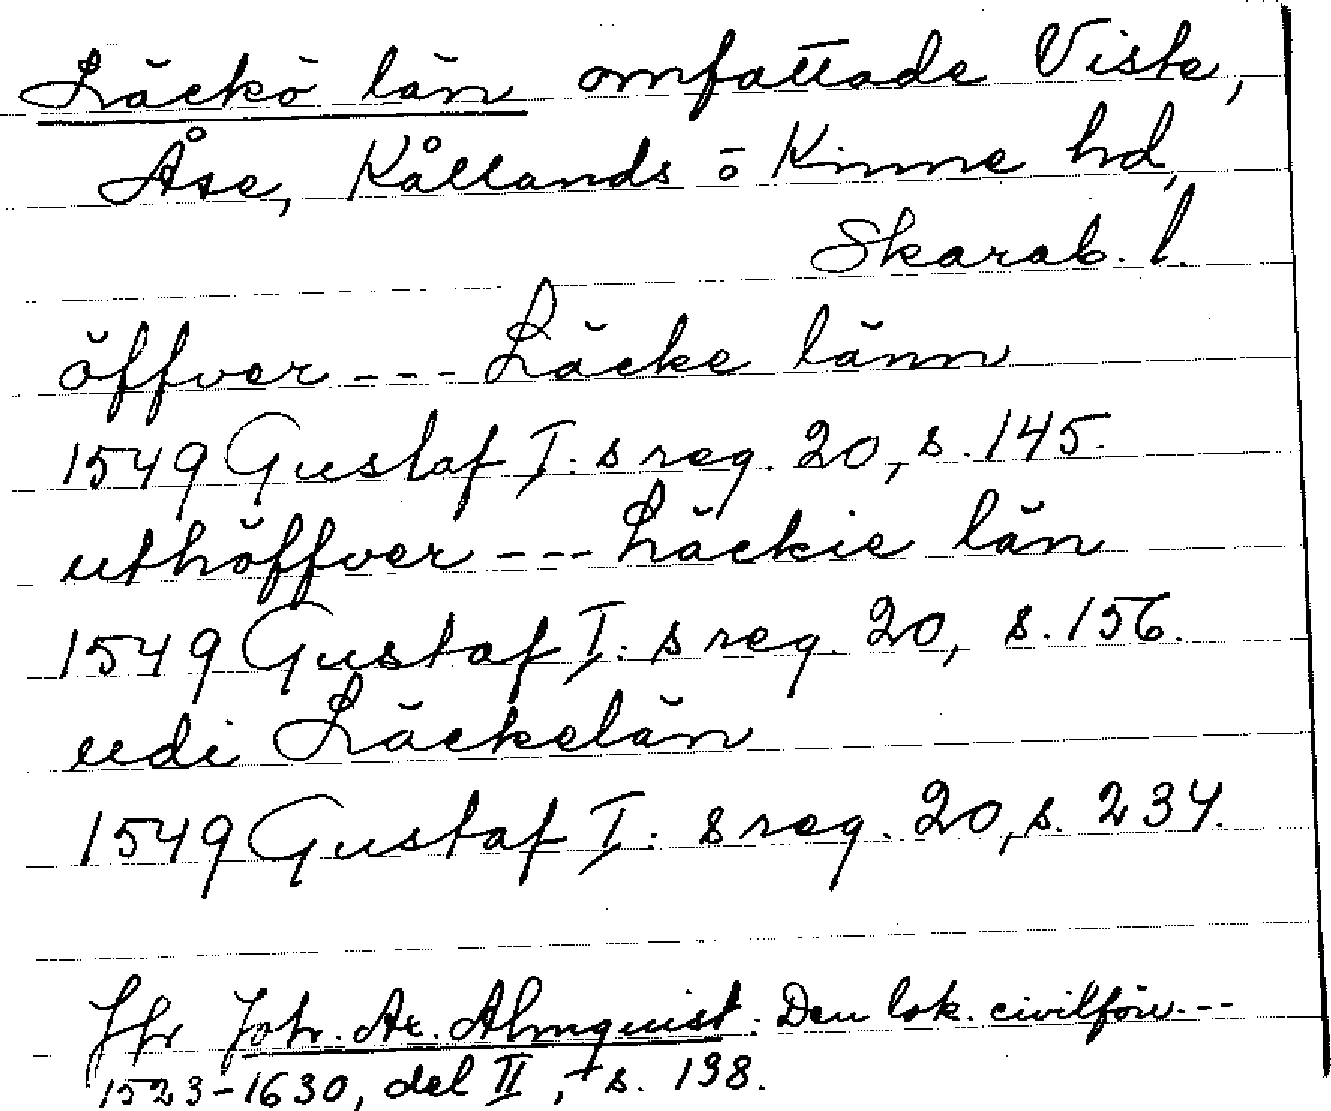 Läckö län omfattade Viste,
Åse, Kållands o Kinne hd,
Skarab. l.
öffver --- Läcke länn
1549 Gustaf I:s reg. 20, s. 145.
uthöffver --- Läckie län
1549 Gustaf I:s reg. 20, s. 156.
udi Läckelän
1549 Gustaf I:s reg. 20, s. 234.
Jfr Joh. Ax. Almquist. Den lok. civilförv.--
1523-1630, del II, s. 138.